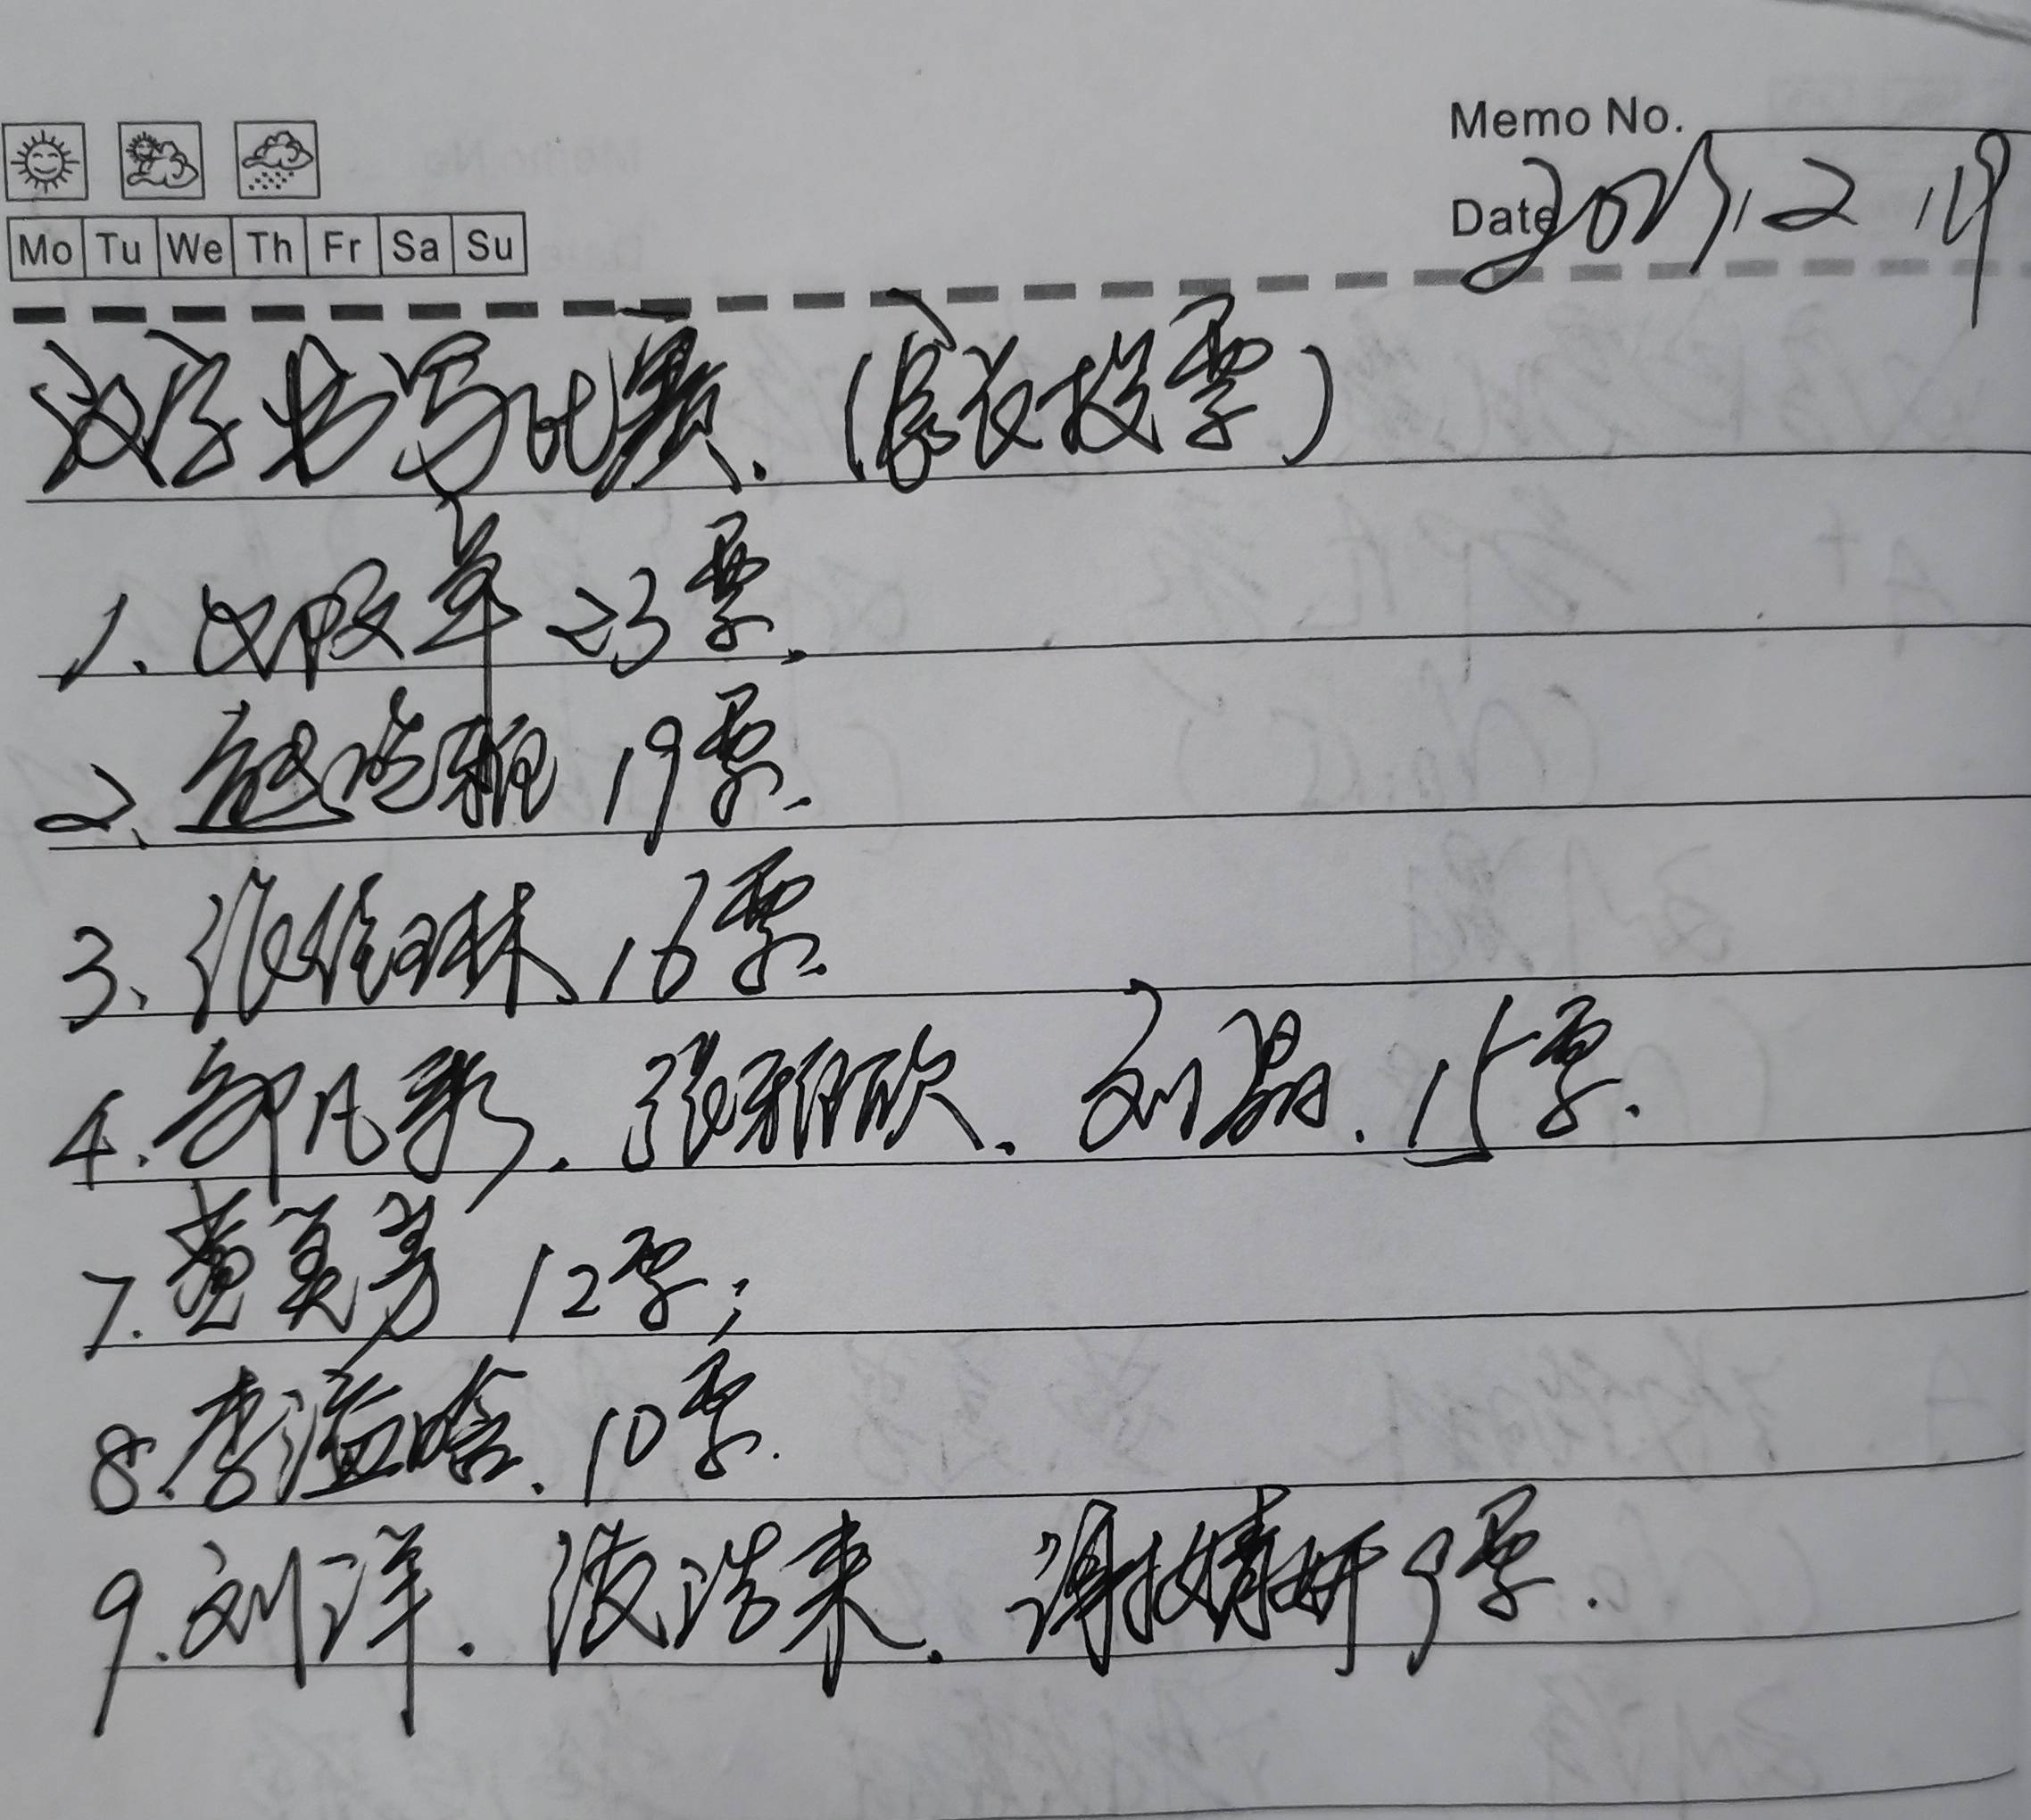 Memo No.
Date 2023.2.19
Mo Tu We Th Fr Sa Su
汉字书写比赛.(家长投票)
1. 23票.
2、赵 雅 19票.
3、张 琳、16票.
4.邹凡彩.张雅欣.刘晶.15票.
7.黄美芳 12票;
8.李溢晗.10票.
9.刘洋. 浩来.谢婧妍 9票.